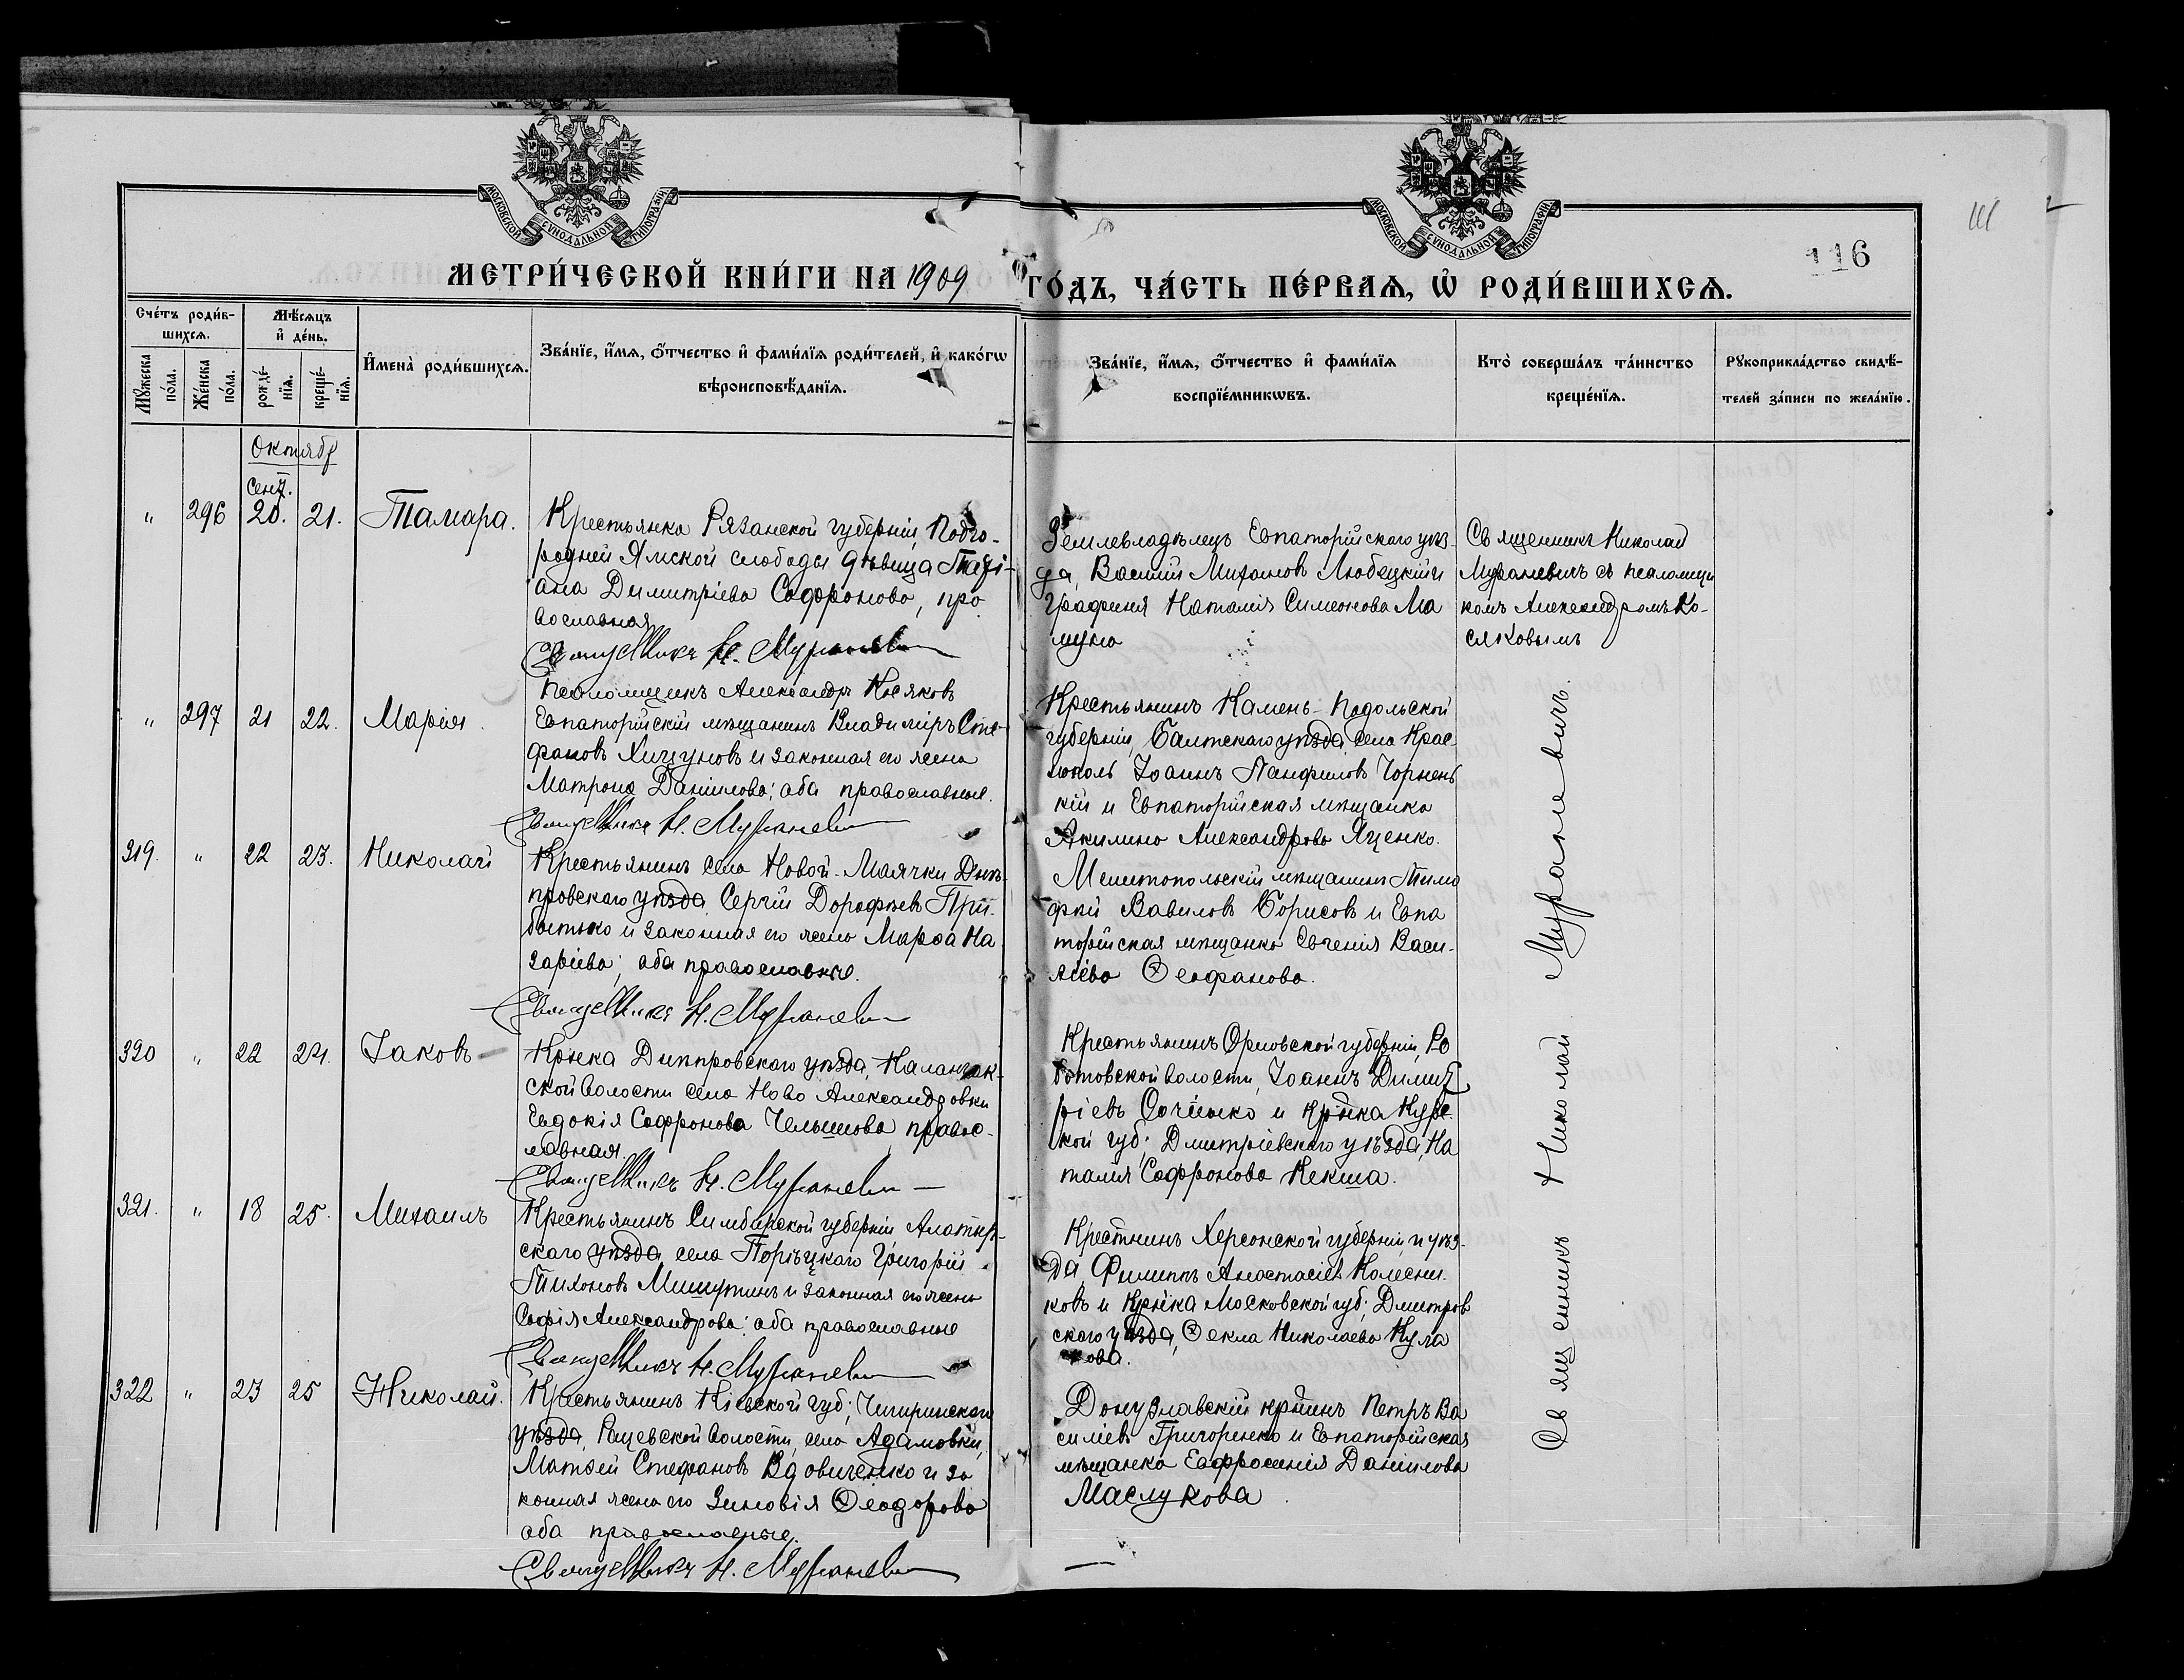 МОСКОВСКОЙ СУНОДАЛЬНОЙ ТИПОГРАФІИ
МОСКОВСКОЙ СУНОДАЛЬНОЙ ТИПОГРАФІИ
116
МЕТРИ́ЧЕСКОЙ КНИ́ГИ НА 1909 ГО́ДЪ, ЧА́СТЬ ПЕ́РВАѦ, Ѡ҆ РОДИ́ВШИХСѦ.
Сче́тъ роди́в-
шихсѧ.
Мꙋ́жеска по́ла.
Же́нска по́ла.
Мѣ́сѧцъ
и҆ де́нь.
рожде́-
нїѧ.
креще́-
нїѧ.
И҆мена̀ роди́вшихсѧ.
Зва́нїе, и҆́мѧ, ѻ҆́тчество и҆ фами́лїѧ роди́телей, и҆ како́гѡ
вѣроисповѣ́данїѧ.
Зва́нїе, и҆́мѧ, ѻ҆́тчество и҆ фами́лїѧ
воспрїе́мникѡвъ.
Кто̀ соверша́лъ та́инство
креще́нїѧ.
Рꙋкоприкла́дство свидѣ́-
телей за́писи по жела́нїю.
Октябр
Сент.
" 296 20. 21. Тамара.
Крестьянка Рязанской губерніи, Подго-
родней Ямской слободы девица Таті-
ана Димитріева Софронова, пра
вославная
Священникъ Н. Мураневич
Псаломщикъ Александръ Косяковъ
Землевладѣлецъ Евпаторійскаго уѣз-
да, Василій Михаиловъ Любецкій и
Графиня Наталія Симеонова Ма
муна
Священникъ Николай
Мураневичъ съ псаломщи
комъ Александромъ Ко-
сяковымъ
" 297 21 22. Марія.
Евпаторійскій мѣщанинъ Владиміръ Сте-
фановъ Хичуновъ и законная его жена
Матрона Даніилова; оба православные.
Священникъ Н. Мураневич
Крестьянинъ Камень-Подольской
губерніи, Балтскаго уѣзда, села Крас-
Іоаннъ Панфиловъ Чорнень
кій и Евпаторійская мѣщанка
Акилина Александрова Яценко.
319. " 22 23. Николай
Крестьянинъ села Новой-Маячки Днѣ-
провскаго уѣзда, Сергій Дорофеевъ При-
бытько и законная его жена Марѳа На
заріева; оба православные.
Священникъ Н. Мураневич
Мелитопольскій мѣщанинъ Тимо
фей Вавиловъ Борисовъ и Евпа
торійская мѣщанка Евгенія Васи-
ліева Ѳеофанова.
320 " 22 24. Іаковъ
Кр-нка Днепровскаго уѣзда, Каланчак-
ской волости села Ново Александровки
Евдокія Софронова Челышова правос-
лавная.
Священникъ Н. Мураневич
Крестьянинъ Орловской губерніи, Ро
ботовской волости, Іоаннъ Димит
ріевъ и кр-нка Курс-
кой губ; Дмитріевскаго уѣзда, На
талія Софронова Кекша.
321. " 18 25. Михаилъ
Крестьянинъ Симбирской губерніи Алатыр-
скаго уѣзда, села Порѣцкаго Григорій
Тихоновъ Мишутинъ и законная его жена
Софія Александрова; оба православные
Священникъ Н. Мураневич
Крестнинъ Херсонской губерніи и уѣз-
да, Филиппъ Анастасіевъ Колесни-
ковъ и кр-нка Московской губ; Дмитров
скаго уѣзда, Ѳекла Николаева Кула
кова.
322 " 23 25 Николай.
Крестьянинъ Кіевской губ; Чигиринскаго
уѣзда, волости, села Адамовки,
Матѳей Стефановъ Вдовиченко и за
конная жена его Зиновія Ѳеодорова
оба православные.
Священникъ Н. Мураневич
Донузлавскій кр-нинъ Петръ Ва
силіевъ Григоренко и Евпаторійская
мѣщанка Евфросинія Даніилова
Маслукова.
Священникъ Николай Мураневичъ.